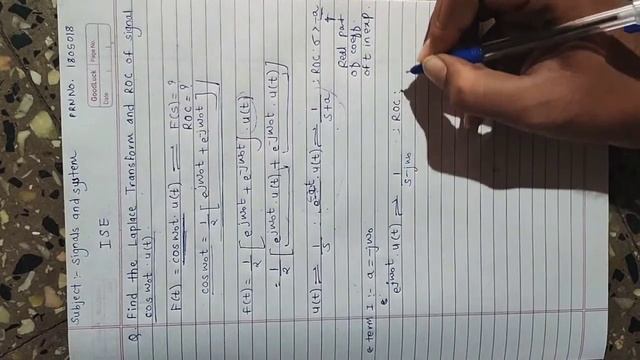 Subject :- Signals and system PRN NO. 1805018
ISE
GoodLuck Page No.
Date
Q. Find the Laplace Transform and ROC of signal
cos ω₀t · u(t)
F(t) = cos ω₀t · u(t) ⇌ F(s) = ?
ROC = ?
cos ω₀t = 1/2 [e^jω₀t + e^-jω₀t]
f(t) = 1/2 [e^jω₀t + e^-jω₀t] · u(t)
= 1/2 [e^jω₀t · u(t) + e^-jω₀t · u(t)]
u(t) ⇌ 1/s ; e^-at · u(t) ⇌ 1/s+a ; ROC: σ > -a
Real part
of coeff.
of t in exp.
e term I :- a = -jω₀
e^jω₀t · u(t) ⇌ 1/s-jω₀ : ROC :